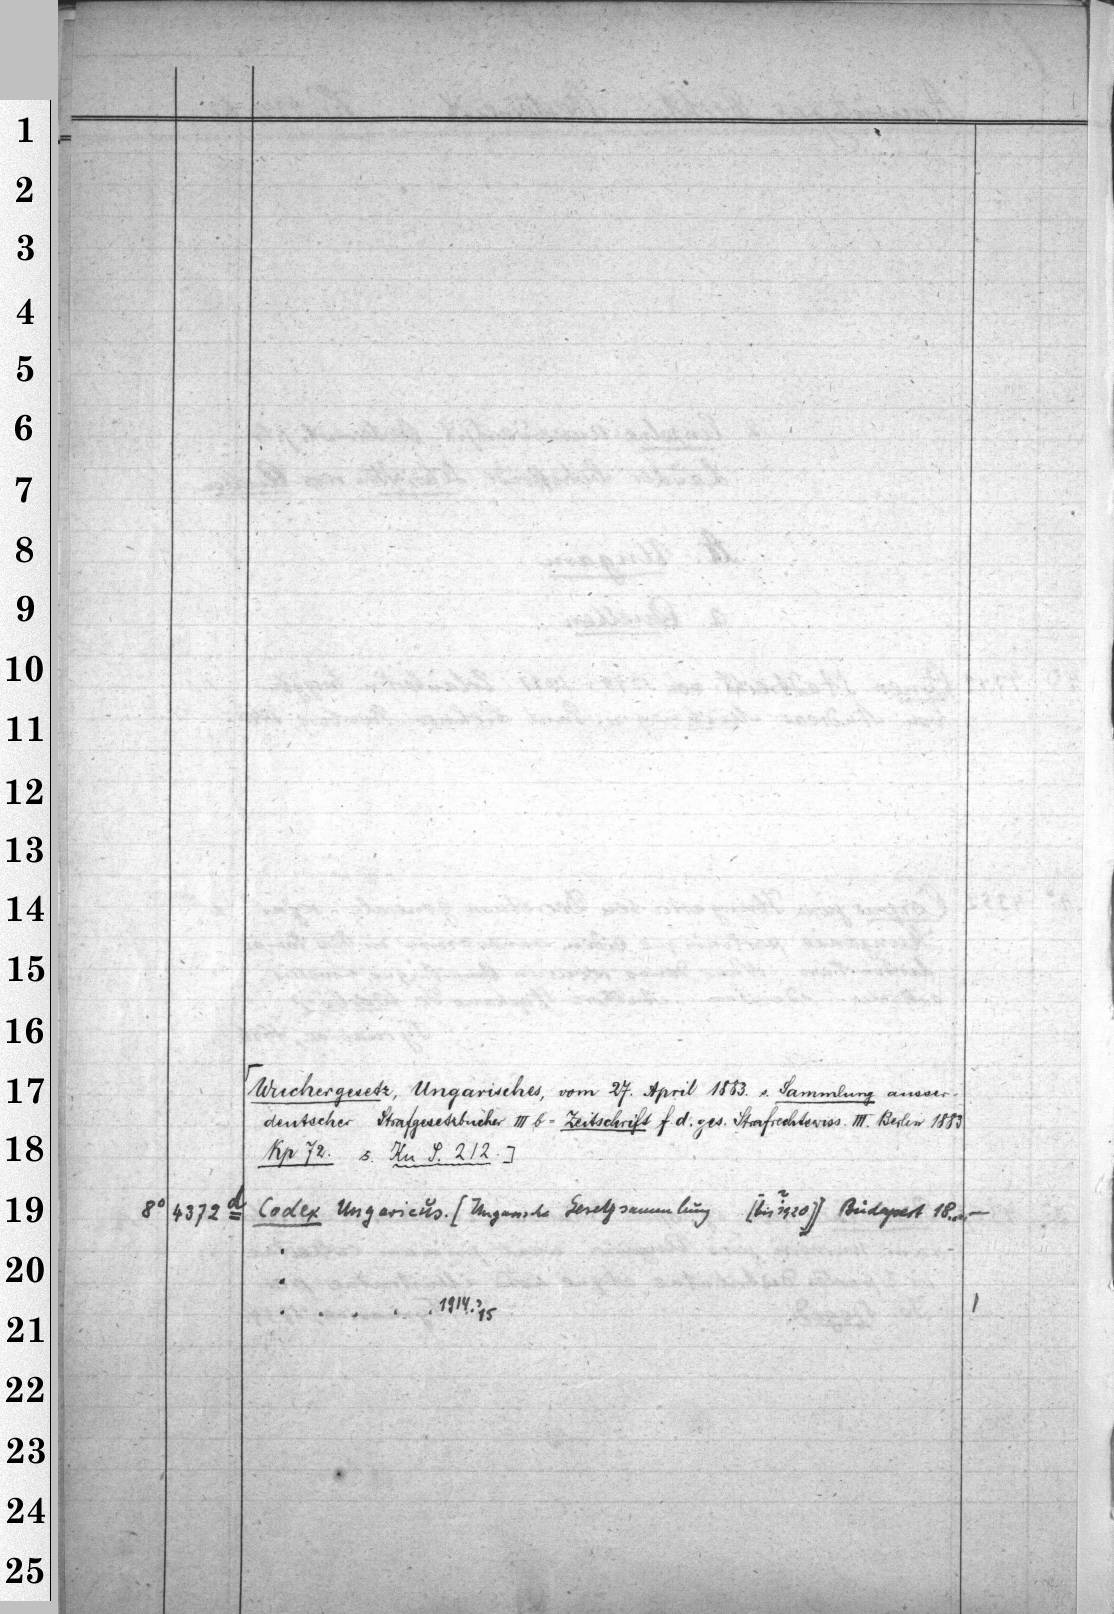 1
2
3
4
5
6
7
8
9
10
11
12
13
14
15
16
17
[Wuchergesetz, Ungarisches, vom 27. April 1883. s. Sammlung ausser-
deutscher Strafgesetzbücher III b = Zeitschrift f. d. ges. Strafrechtswiss. III. Berlin 1883
18
Kp 72. s. Ku S. 212.]
19
8° 4372 d Codex Ungaricus. [Ungarische Gesetzsammlung [bis 1920]] Budapest 18..-
20
21
. . . . . 1914.15 1
22
23
24
25